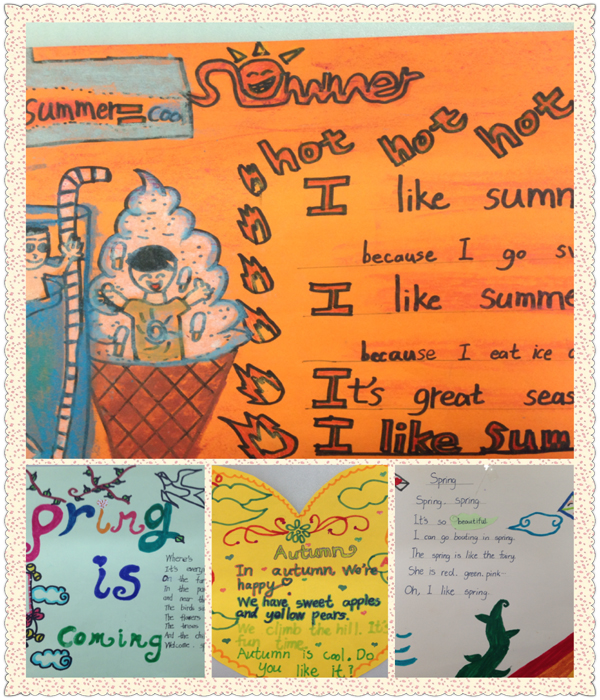 summer= coo
Summer
hot hot hot
I like summ
because I go s
I like summe
because I eat ice
It's great seas
I like Sum
Spring
is
coming
Where's
It's every
On the
In the
and near th
The birds
The flowers
The
And the
Welcome
Autumn
In autumn We're
happy.
We have sweet apples
and yellow pears.
We climb the hill. It's
fun time.
Autumn is cool. Do
You like it?
Spring
Spring spring
It's so beautiful
I can go boating in spring.
The spring is like the fairy.
She is red. green. pink.
Oh, I like spring.